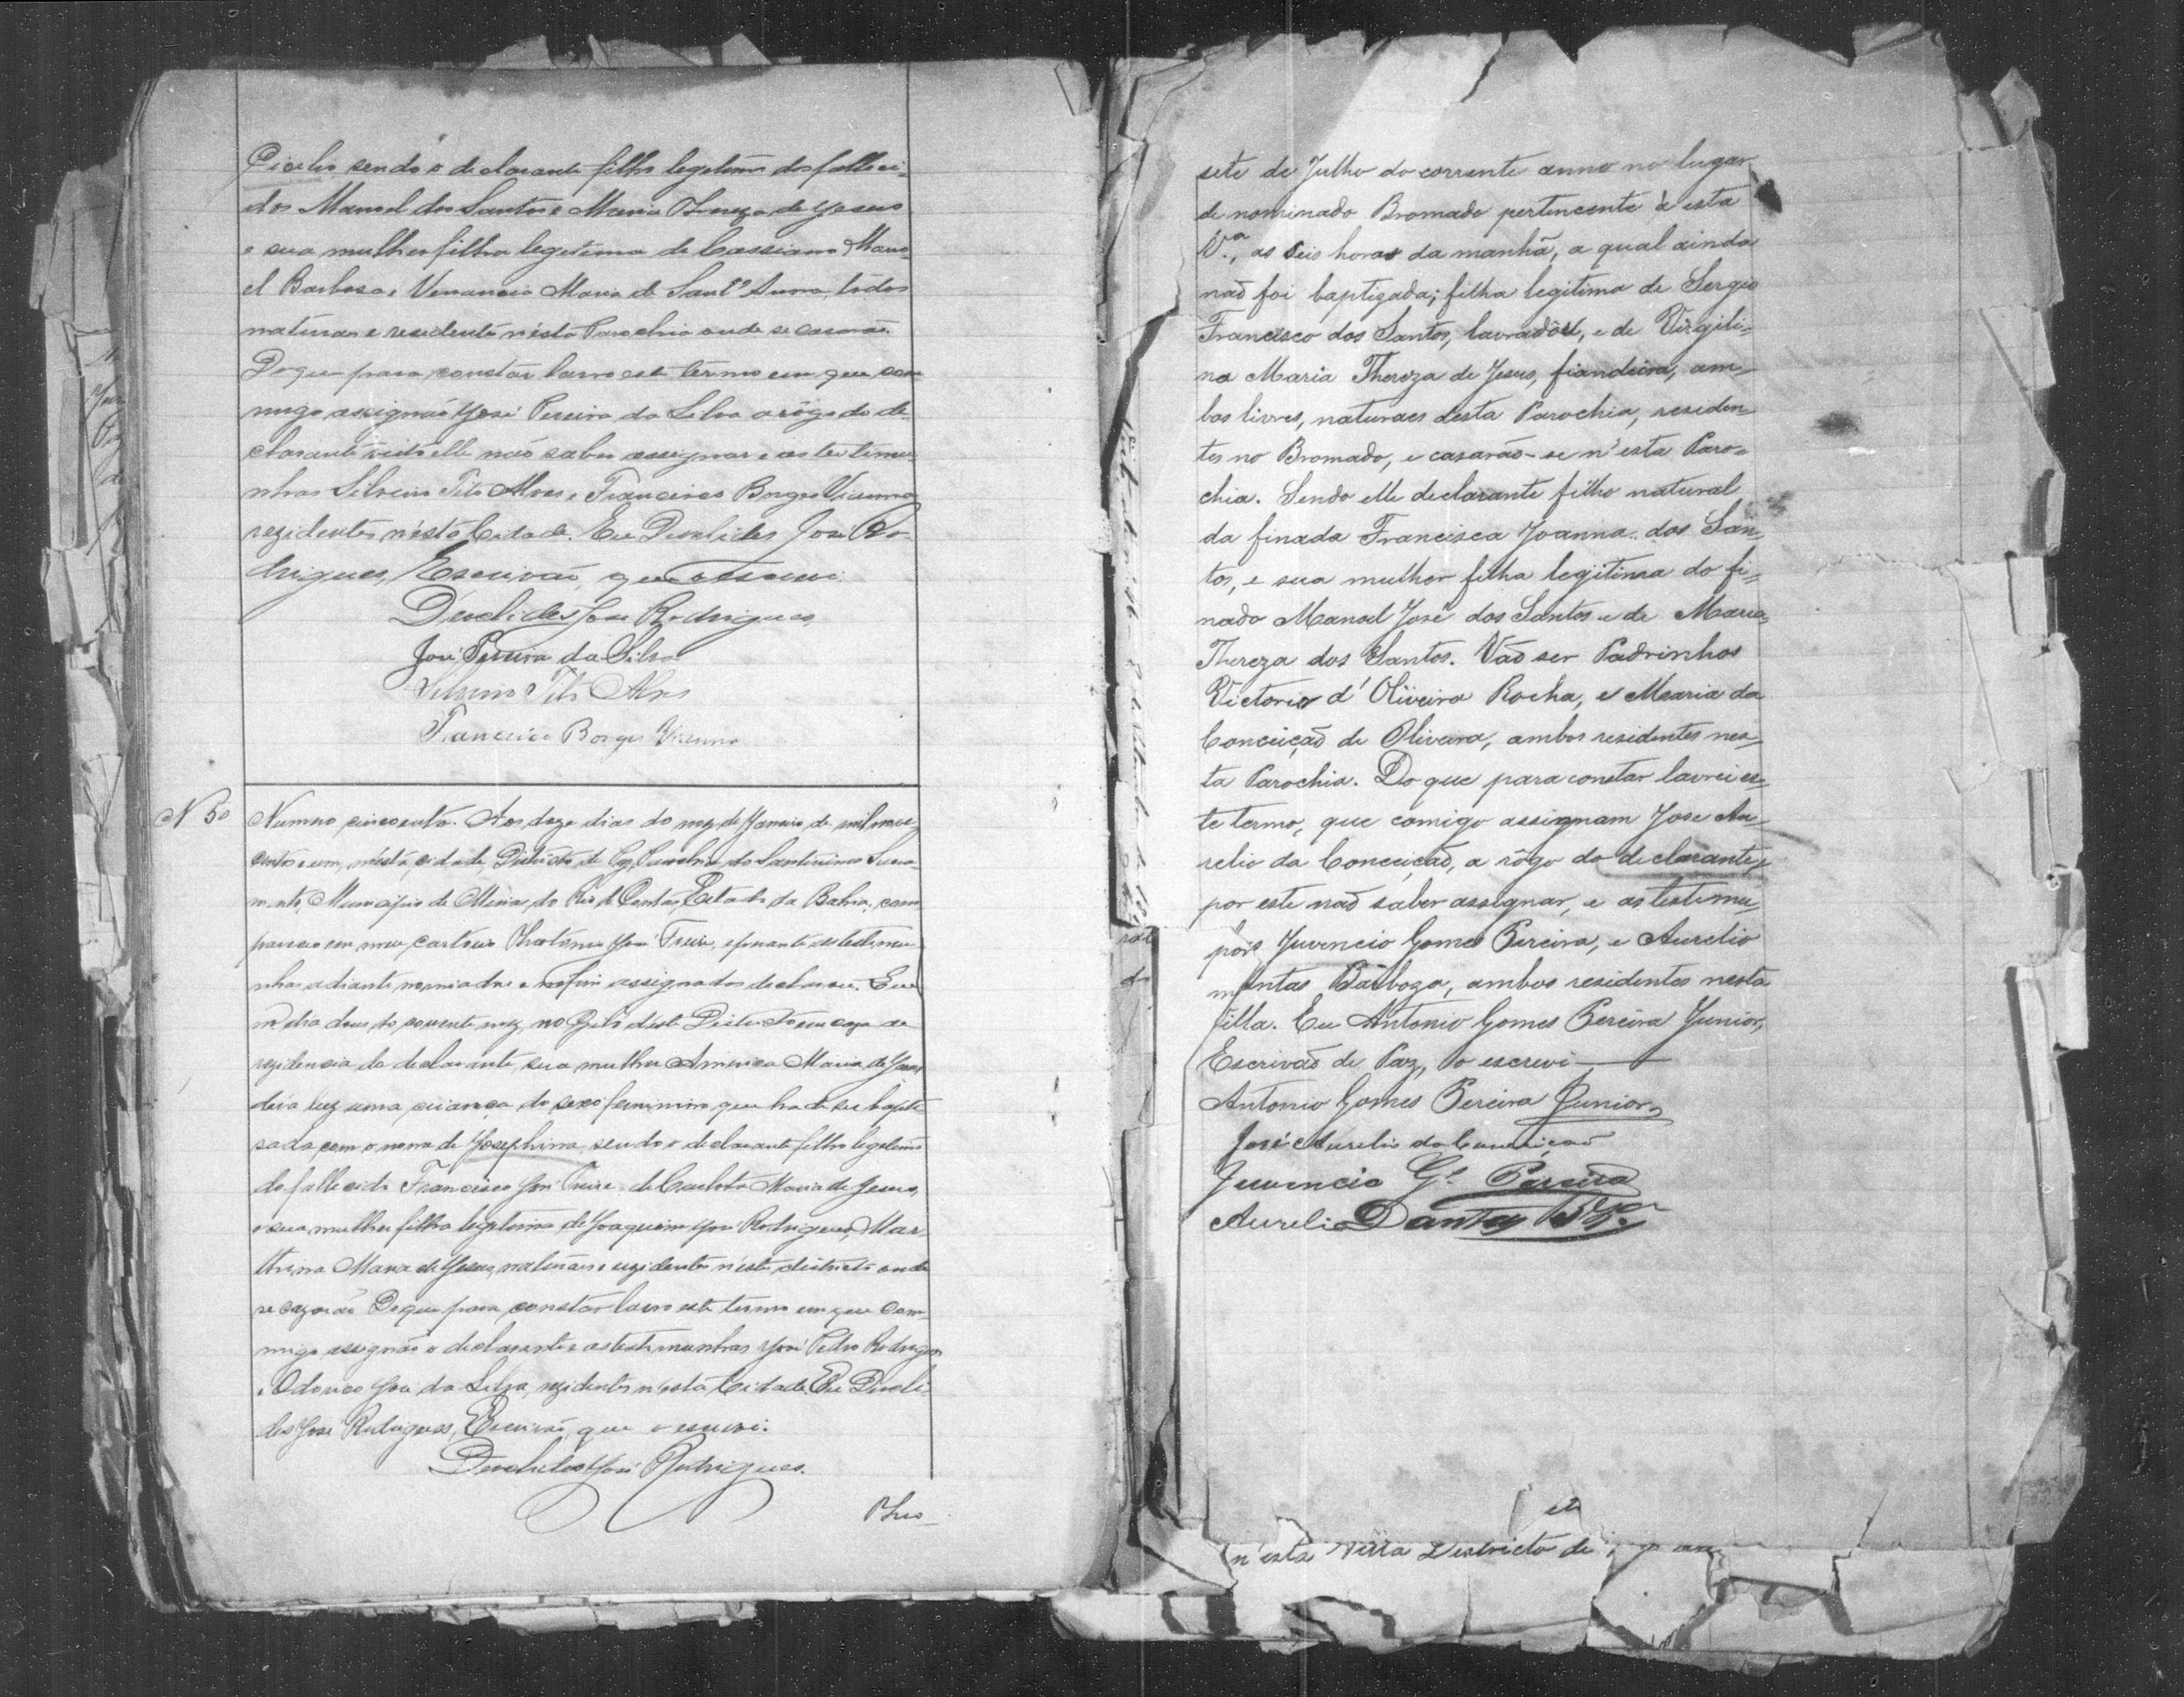 sendo o declarante filho legitimo dos falleci-
dos Manoel dos Santos e Maria Thereza de Jesus
e sua mulher filha legitima de Cassiano Mano-
el Barbosa e Venancia Maria de Sant' Anna, todos
naturaes e residentes n'ésta Parochia onde se casarão.
Do que para constar lavro este termo em que com
migo assignão José Pereira da Silva a rôgo do de-
clarante visto elle não saber assignar e as testemu-
nhas Silvino Tito Alves e Francisco Borges
rezidentes n'ésta Cidade. Eu Deoclides José Ro-
drigues, Escrivão, que o escrevi.
Deoclides José Rodrigues,
José Pereira da Silva
Silvino Tito Alves
Francisco Borges
N 50
Numero cincoenta. Aos doze dias do mez de Janeiro de mil nove-
centos e um, n'ésta cidade, Districto de Paz, Parochia do Santissimo Sacra-
mento, Municipio de Minas do Rio de Contas, Estado da Bahia, com
pareceu em meu cartorio José Freire, e perante as testemu-
nhas adiante nomiadas e no fim assignados declarou: Que
no dia dous do corrente mez, no deste Districto em caza de
rezidencia do declarante, sua mulher America Maria de Jesus
deu a luz uma criança do sexo feminino que ha de ser bapti-
sada com o nome de Josephina, sendo o declarante filho legitimo
do fallecido Francisco José Freire e de Carlota Maria de Jesus,
e sua mulher filha legitima de Joaquim José Rodrigues, Mar-
Maria de Jesus, naturaes e rezidentes n'este districto onde
se cazarão. Do que para constar lavro este termo em que com-
migo assignão o declarante e as testemunhas José Pedro Rodrigues
e José da Silva, rezidentes n'ésta Cidade. Eu Deocli-
des José Rodrigues, Escrivão, que o escrevi.
Deoclides José Rodrigues.
Theo
sete de Julho do corrente anno no lugar
denominado Bromado pertencente à esta
V.ª, as seis horas da manhã, a qual ainda
não foi baptizada; filha legitima de Sergio
Francisco dos Santos, lavradôr, e de Virgili-
na Maria Thereza de Jesus, fiandeira, am-
bos livres, naturaes desta Parochia, residen-
tes no Bromado, e casarão-se n'esta Paro-
chia. Sendo elle declarante filho natural
da finada Francisca Joanna dos San-
tos, e sua mulher filha legitima do fi-
nado Manoel José dos Santos e de Maria
Thereza dos Santos. Vão ser Padrinhos
Victorio d' Oliveira Rocha, e Maria da
Conceição de Oliveira, ambos residentes nes-
ta Parochia. Do que para constar lavrei es-
te termo, que comigo assignam José Au-
relio da Conceição, a rôgo do declarante,
por este não saber assignar, e as testemu-
Juvencio Gomes Pereira, e Aurelio
Barboza, ambos residentes nesta
Villa. Eu Antonio Gomes Pereira Junior,
Escrivão de Paz, o escrevi
Antonio Gomes Pereira Junior
José Aurelio da Conceição
Juvencio Gs. Pereira
Aurelio Dantas
n'esta Villa Districto de